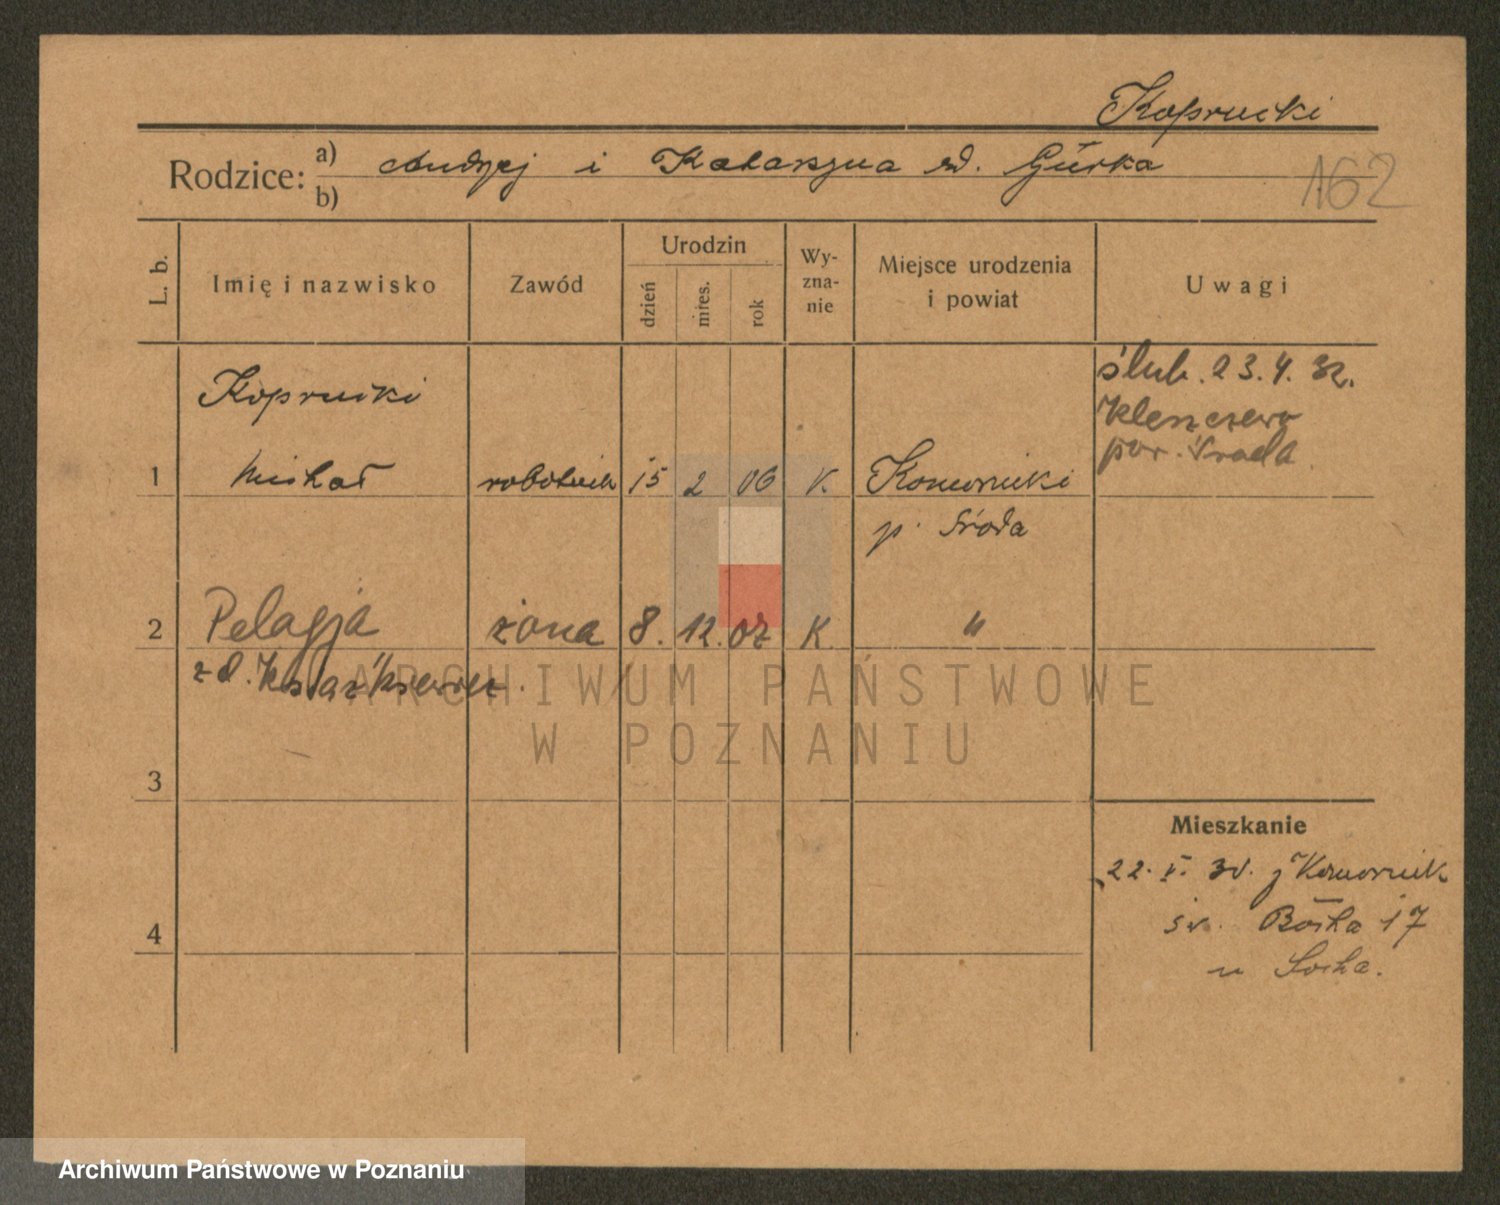 Koprucki
Rodzice: a) Andrzej i Katarzyna zd. Gúrka
b)
162
L. b.
Imię i nazwisko
Zawód
Urodzin
dzień
mies.
rok
Wy-
zna-
nie
Miejsce urodzenia
i powiat
Uwagi
Koprucki
ślub. 23.4.32.
Kleszczewo
pow. Środa.
1 Michał robotnik 15 2 06 K. Komorniki
p. Środa
2 Pelagja żona 8. 12. 07 K. "
zd.
ARCHIWUM PAŃSTWOWE
W POZNANIU
3
Mieszkanie
22. V. 30. z Komornik
4
św. Rocha 17
u Socha.
Archiwum Państwowe w Poznaniu